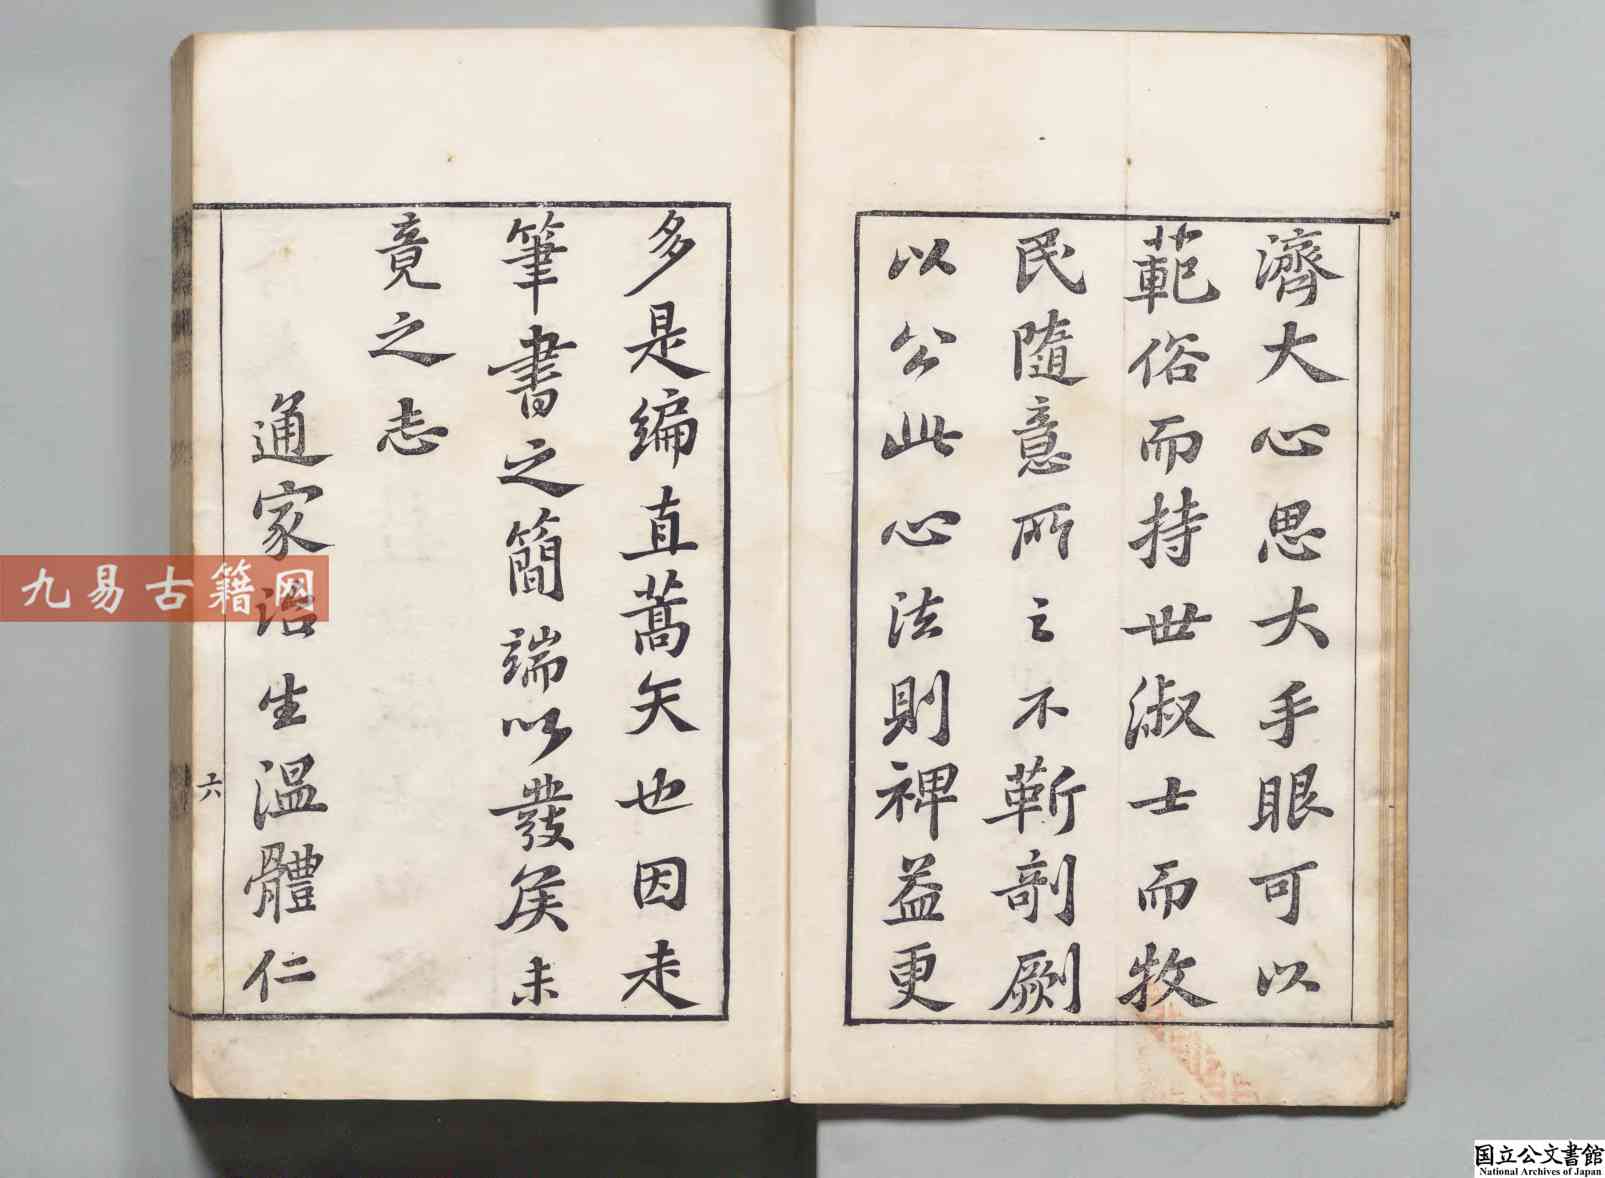 濟大心思大手眼可以
範俗而持世淑士而牧
民隨意所之不蘄剖劂
以公此心法則裨益更
多是編直蒿矢也因走
筆書之簡端以發矦未
竟之志
通家治生溫體仁
六
九易古籍网
国立公文書館
National Archives of Japan